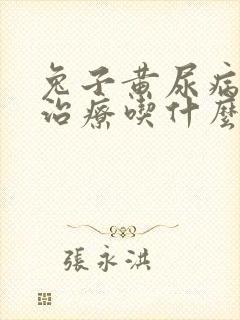 兔子黄尿病
治療喫什麽
張永洪